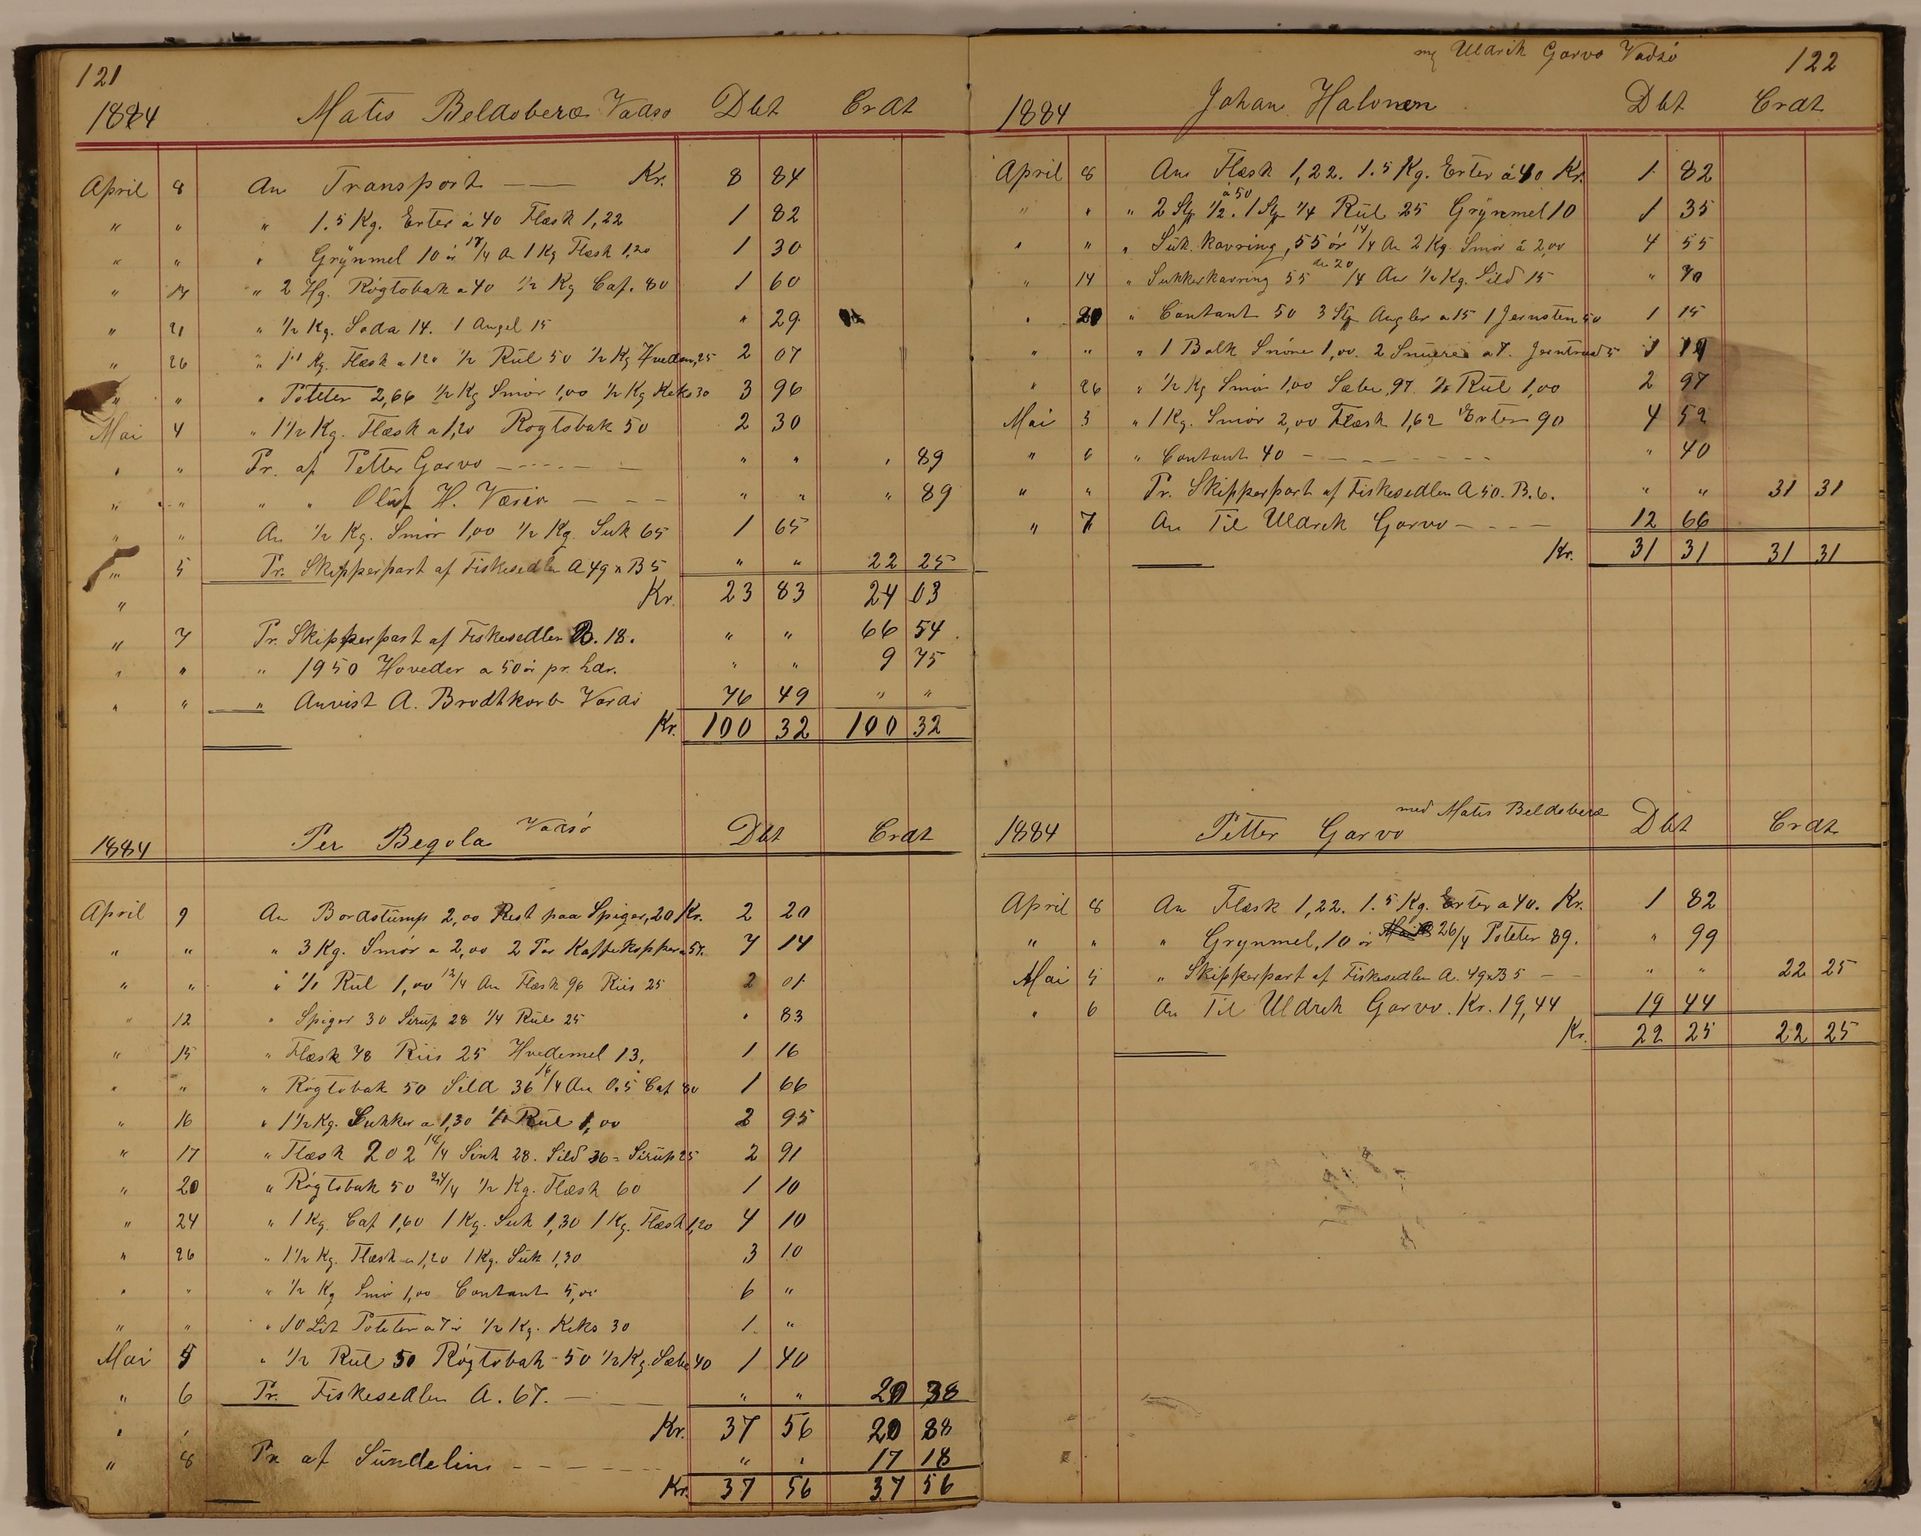 121
1884 Matis Beldoberæ Vadsø Dbt Crdt
April 8 An Transport — — Kr. 8 84
" " " 1.5 Kg. Erter à 40 Flæsk 1,22 1 82
" " " Grÿnmel 10 ør 18/4 An 1 Kg Flæsk 1,20 1 30
" 14 " 2 Hg. Røgtobak a 40 1/2 Kg Caf. 80 1 60
" 21 " 1/2 Kg. Soda 14. 1 Angel 15 " 29
" 26 " 1 Kg. Flæsk a 120 1/2 Rul 50 1/2 Kg Hvedem, 25 2 07
" " " Poteter 2,66 1/2 Kg Smør 1,00 1/2 Kg Keks 30 3 96
Mai 4 " 1 1/2 Kg. Flæsk a 1,20 Rogtobak 50 2 30
" " Pr. af Petter Garvo — " " " 89
" " " " Oluf H. — — — " " " 89
" " An 1/2 Kg. Smør 1,00 1/2 Kg. Suk 65 1 65
" 5 Pr. Skipperpart af Fiskesedlen A 49 x B 5 " " 22 25
" Kr. 23 83 24 03
" 7 Pr. Skipperpart af Fiskesedlen B. 18. " " 66 54
" " " 1950 Hoveder a 50 ør pr. hdr. " " 9 75
" " " Anvist A. Brodtkorb Vardø 76 49 " "
Kr. 100 32 100 32
1884 Per Begola Vadsø Dbt Crdt
April 9 An Bordstump 2,00 Rest paa Spiger, 20 Kr. 2 20
" " " 3 Kg. Smør a 2,00 2 Par Kaffekopper a 57. 7 14
" " " 1/1 Rul 1,00 12/4 An Flæsk 96 Riis 25 2 01
" 12 " Spiger 30 Sirup 28 1/4 Rul 25 " 83
" 15 " Flæsk 78 Riis 25 Hvedemel 13, 1 16
" " " Røgtobak 50 Sild 36 16/4 An 0.5 Caf 80 1 66
" 16 " 1 1/2 Kg. Sukker a 1,30 1/1 Rul 1,00 2 95
" 17 " Flæsk 202 18/4 Sink 28. Sild 36 = Sirup 25 2 91
" 20 " Røgtobak 50 24/4 1/2 Kg. Flæsk 60 1 10
" 24 " 1 Kg. Caf 1,60 1 Kg. Suk 1,30 1 Kg. Flæsk 1,20 4 10
" 26 " 1 1/2 Kg. Flæsk a 1,20 1 Kg. Suk 1,30 3 10
" " " 1/2 Kg Smør 1,00 Contant 5,00 6 "
" " " 10 Lit Poteter a 7 ør 1/2 Kg. Keks 30 1 "
Mai 5 " 1/2 Rul 50 Røgtobak 50 1/2 Kg. Sæbe 40 1 40
" 6 Pr. Fiskesedlen A. 67. — " " 20 38
" " Kr. 37 56 20 38
" 8 Pr af Sundelin — — — " " 17 18
Kr. 37 56 37 56
122
Uldrik Garvo Vadsø
1884 Johan Halonen Dbt Crdt
April 8 An Flæsk 1,22. 1.5 Kg. Erter à 40 Kr. 1 82
" " " 2 Stg 1/2 à 50. 1 Stg 1/4 Rul 25 Grÿnmel 10 1 35
" " " Suk. Kavring, 55 ør 14/4 An 2 Kg. Smør à 2,00 4 55
" 14 " Sukkerkavring 55 /4 An 1/2 Kg. Sild 15 " 70
" 20 " Contant 50 3 Stg Angler a 15 1 Jernsten 50 1 15
" " " 1 Bolk Snøre 1,00. 2 a 7. 5 1 19
" 26 " 1/2 Kg Smør 1,00 Sæbe, 97. Rul 1,00 2 97
Mai 3 " 1 Kg. Smør 2,00 Flæsk 1,62 Erter 90 4 52
" 6 " Contant 40 — — — " 40
" " Pr. Skipperpart af Fiskesedlen A 50. B. 6. " " 31 31
" 7 An Til Uldrik Garvo — — — 12 66
Kr. 31 31 31 31
1884 Petter Garvo med Matis Beldoberæ Dbt Crdt
April 8 An Flæsk 1,22. 1.5 Kg. Erter a 40. Kr. 1 82
" " " Grynmel, 10 ør 26/4 Poteter 89. " 99
Mai 5 " Skipperpart af Fiskesedlen A. 49 x B 5 — " " 22 25
" 6 An Til Uldrik Garvo. Kr. 19,44 19 44
Kr. 22 25 22 25